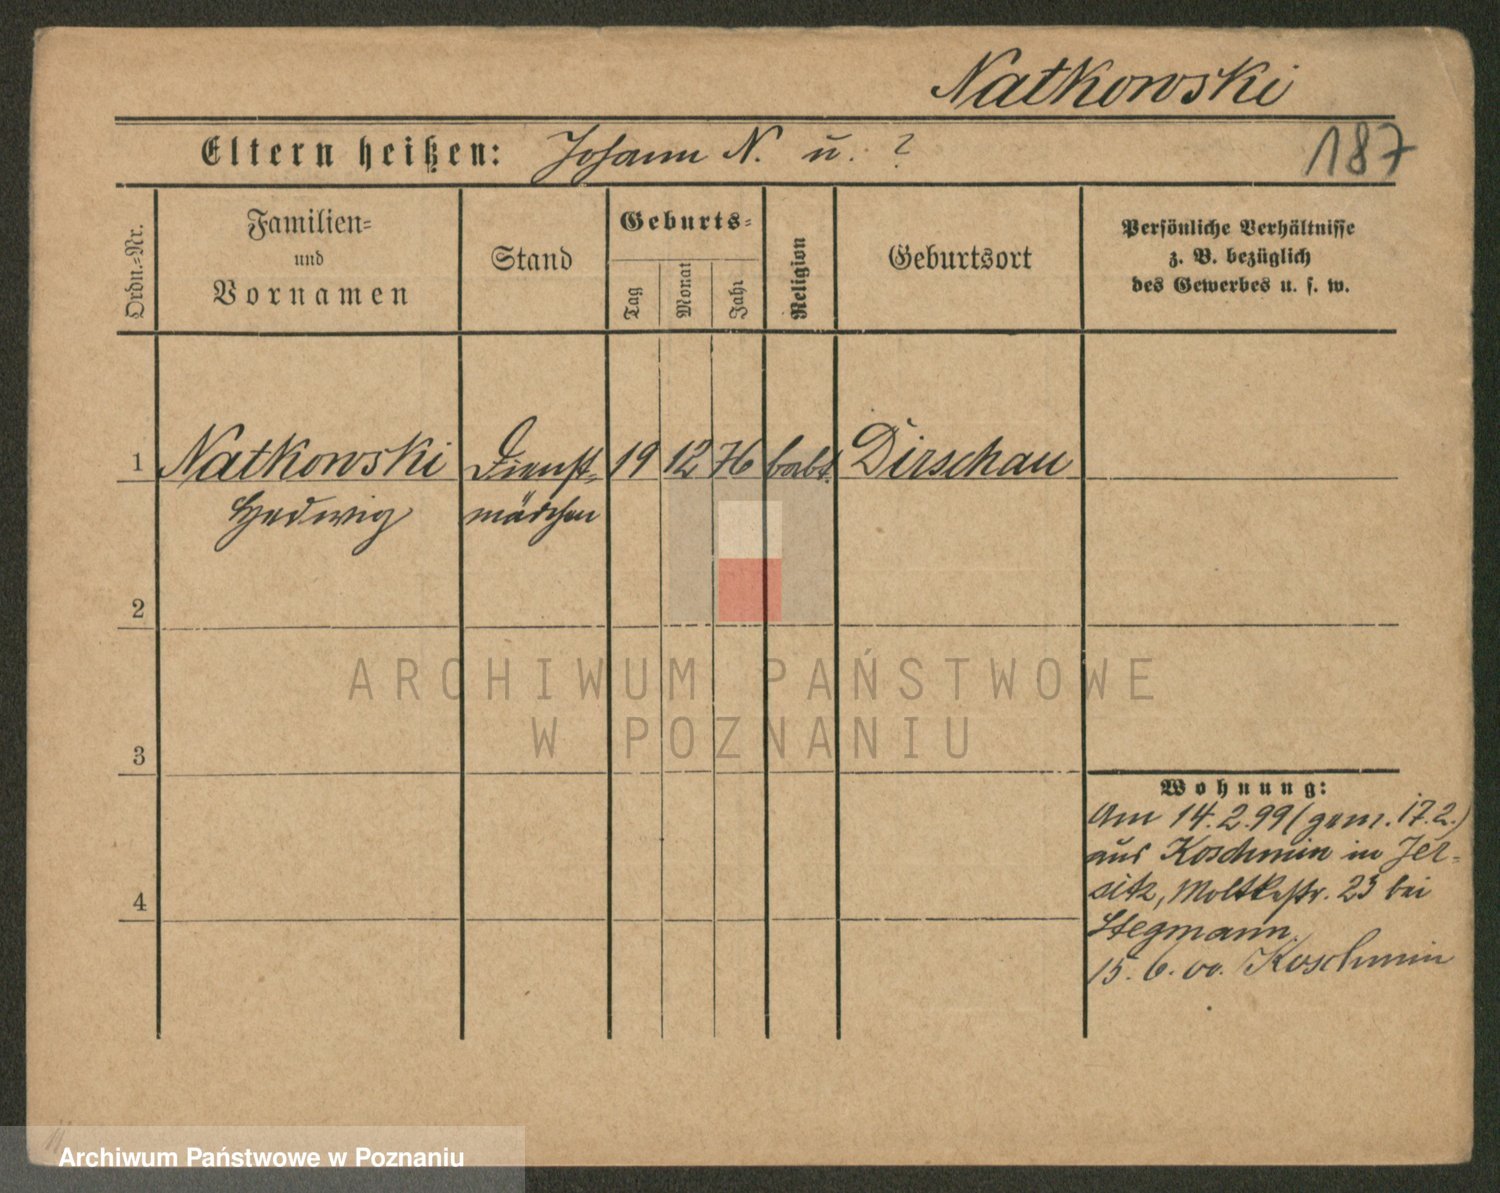 Natkowski
187
Eltern heißen: Johann N. u. ?
Ordn.-Nr.
Familien- und Vornamen
Stand
Geburts-
Tag
Monat
Jahr
Religion
Geburtsort
Persönliche Verhältnisse
z. B. bezüglich
des Gewerbes u. s. w.
1 Natkowski Dienst- 19 12 76 Dirschau
Hedwig mädchen
2
3
4
Wohnung:
Am 14.2.99 (gem. 17.2.)
aus Koschmin in Jer-
sitz, Moltkestr. 23 bei
Stegmann.
15.6.00. Koschmin
ARCHIWUM PAŃSTWOWE
W POZNANIU
Archiwum Państwowe w Poznaniu